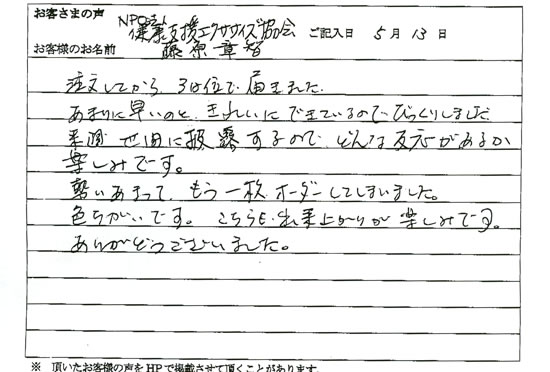 お客さまの声 NPO法人 健康支援エクササイズ協会 ご記入日 5月13日
お客様のお名前 藤原章智
注文してから、3日位で届きました。
あまりに早いのと、きれいにできているのでびっくりしました
来週 世間に披露するので、どんな反応があるか
楽しみです。
勢いあまって、もう一枚オーダーしてしまいました。
色ちがいです。こちらも出来上がりが楽しみです。
ありがとうございました。
※ 頂いたお客様の声をHPで掲載させて頂くことがあります。